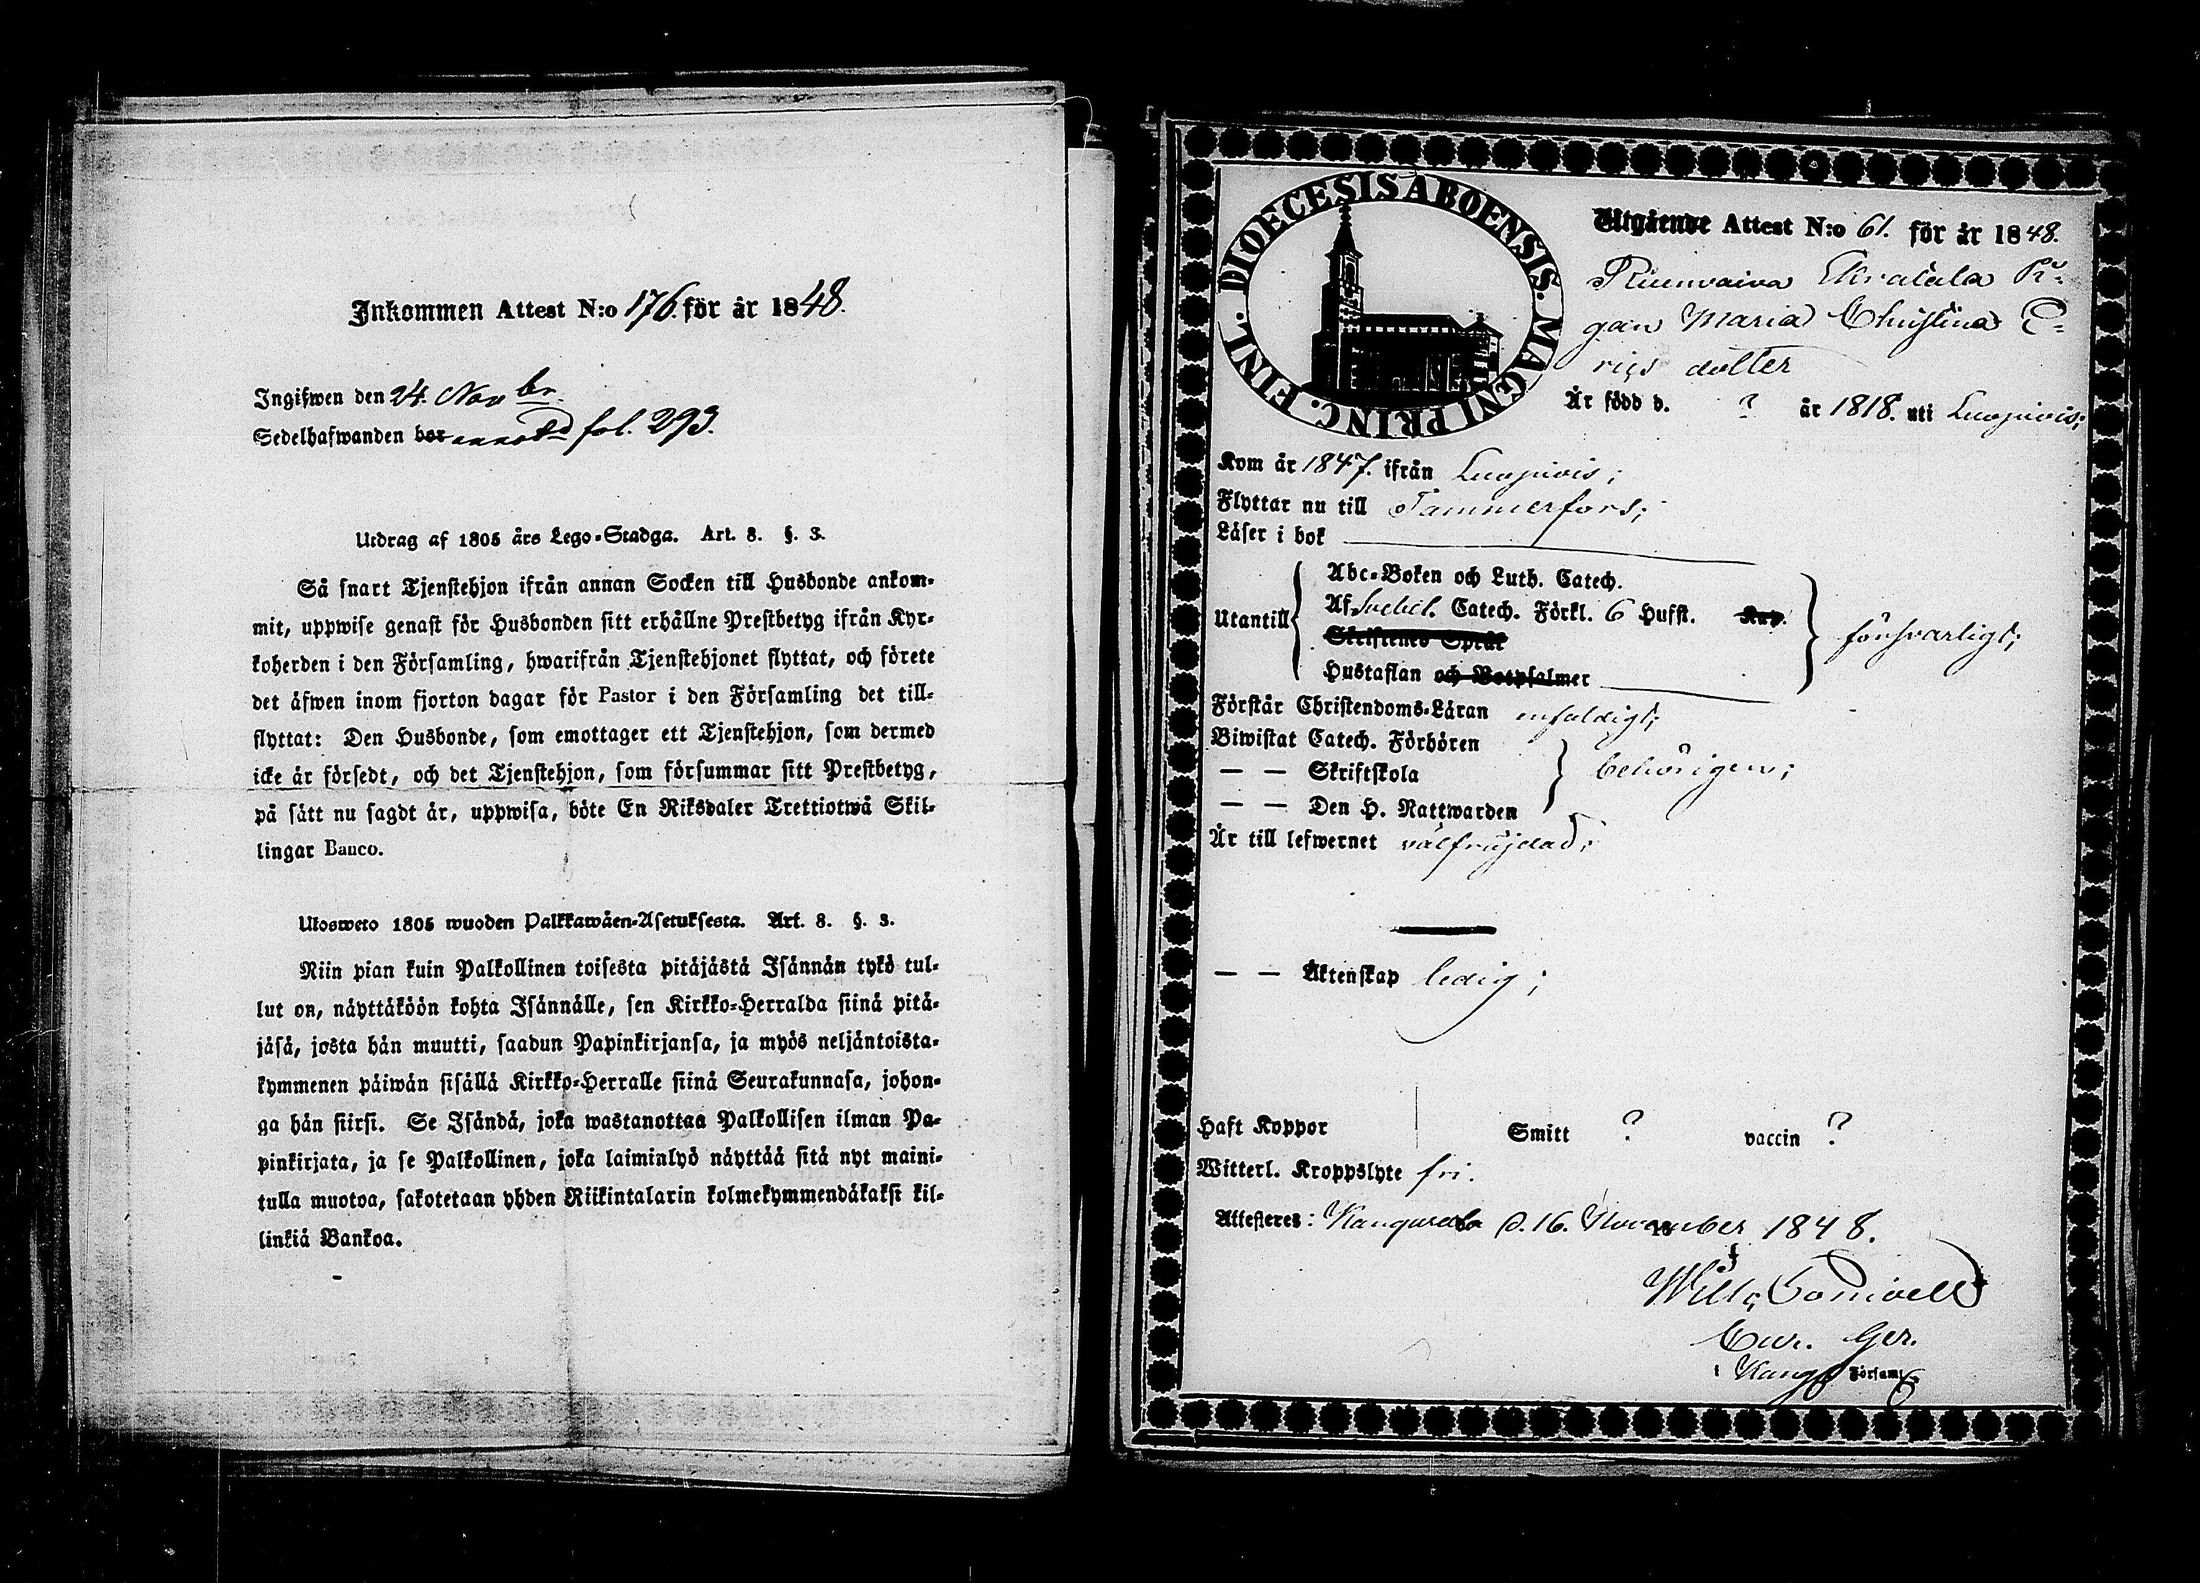 Inkommen Attest N:o 176. för år 1848.
Ingifwen den 24. Novbr.
Sedelhafwanden bor annotd fol. 293.
Utdrag af 1805 års Lego-Stadga. Art. 8. §. 3.
Så snart Tjenstehjon ifrån annan Socken till Husbonde ankom-
mit, uppwise genast för Husbonden sitt erhållne Prestbetyg ifrån Kyr-
koherden i den Församling, hwarifrån Tjenstehjonet flyttat, och förete
det äfwen inom fjorton dagar för Pastor i den Församling det till-
flyttat: Den Husbonde, som emottager ett Tjenstehjon, som dermed
icke är försedt, och det Tjenstehjon, som försummar sitt Prestbetyg,
på sätt nu sagdt är, uppwisa, böte En Riksdaler Trettiotwå Skil-
lingar Banco.
Utosweto 1805 wuoden Palkkawäen-Asetuksesta. Art. 8. §. 3.
Niin pian kuin Palkollinen toisesta pitäjästä Isännän tykö tul-
lut on, näyttäköön kohta Isännälle, sen Kirkko-Herralda siinä pitä-
jäsä, josta hän muutti, saadun Papinkirjansa, ja myös neljäntoista-
kymmenen päiwän sisällä Kirkko-Herralle siinä Seurakunnasa, johon-
ga hän siirsi. Se Isändä, joka wastanottaa Palkollisen ilman Pa-
pinkirjata, ja se Palkollinen, joka laiminlyö näyttää sitä nyt maini-
tulla muotoa, sakotetaan yhden Riikintalarin kolmekymmendäkaksi kil-
linkiä Bankoa.
DIOECESIS ABOENSIS. MAGNI PRINC. FINL.
Utgående Attest N:o 61. för år 1848.
Pi-
gan Maria Christina E-
rics dotter
Är född d. ? år 1818. uti
Kom år 1847. ifrån
Flyttar nu till Tammerfors;
Läser i bok
Abc-Boken och Luth. Catech.
Utantill Af Svebel. Catech. Förkl. 6 Hufst. Kap. försvarligt;
Skriftenes Språk
Hustaflan och Botpsalmer
Förstår Christendoms-Läran enfaldigt;
Biwistat Catech. Förhören
— — Skriftskola behörigen;
— — Den H. Nattwarden
Är till lefwernet välfrejdad;
— — Äktenskap ledig;
Haft Koppor Smitt ? vaccin ?
Witterl. Kroppslyte fri.
Attesteres: Kangasala d. 16. November 1848.
Cur. Ger.
i Kangs Församl.